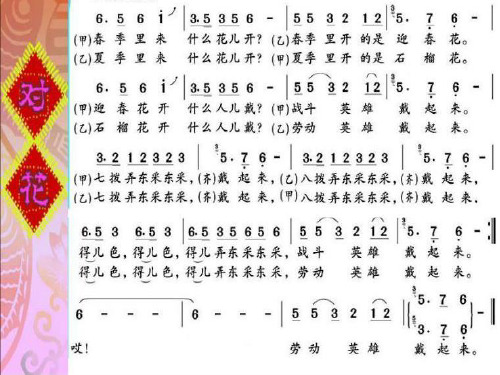 对花
6. 5 6 i | 3.5 3 5 6 - | 5 5 3 2 1 2 | 5. 7 6 - |
(甲)春季里来 什么花儿开?(乙)春季里开的是 迎春花。
(乙)夏季里来 什么花儿开?(甲)夏季里开的是 石榴花。
6. 5 6 i | 3.5 3 5 6 - | 5 5 3 2 1 2 | 5. 7 6 - |
(甲)迎春花开 什么人儿戴?(甲)战斗 英雄 戴起来。
(乙)石榴花开 什么人儿戴?(乙)劳动 英雄 戴起来。
3.2 1 2 3 2 3 | 5. 7 6 - | 3.2 1 2 3 2 3 | 5. 7 6 - |
(甲)七拨弄东采东采,(齐)戴起来,(乙)八拨弄东采东采,(齐)戴起来,
(乙)七拨弄东采东采,(齐)戴起来,(甲)八拨弄东采东采,(齐)戴起来.
6.5 3 6.5 3 | 6.5 3 5 6 5 6 | 5 5 3 2 1 2 | 5. 7 6 - :‖
得儿色,得儿色,得儿弄东采东采,战斗 英雄 戴起来。
得儿色,得儿色,得儿弄东采东采,劳动 英雄 戴起来。
6 - - - | 6 - - - | 5 5 3 2 1 2 | 5. 7 6 ‖
3. 7 6
哎! 劳动 英雄 戴起来。